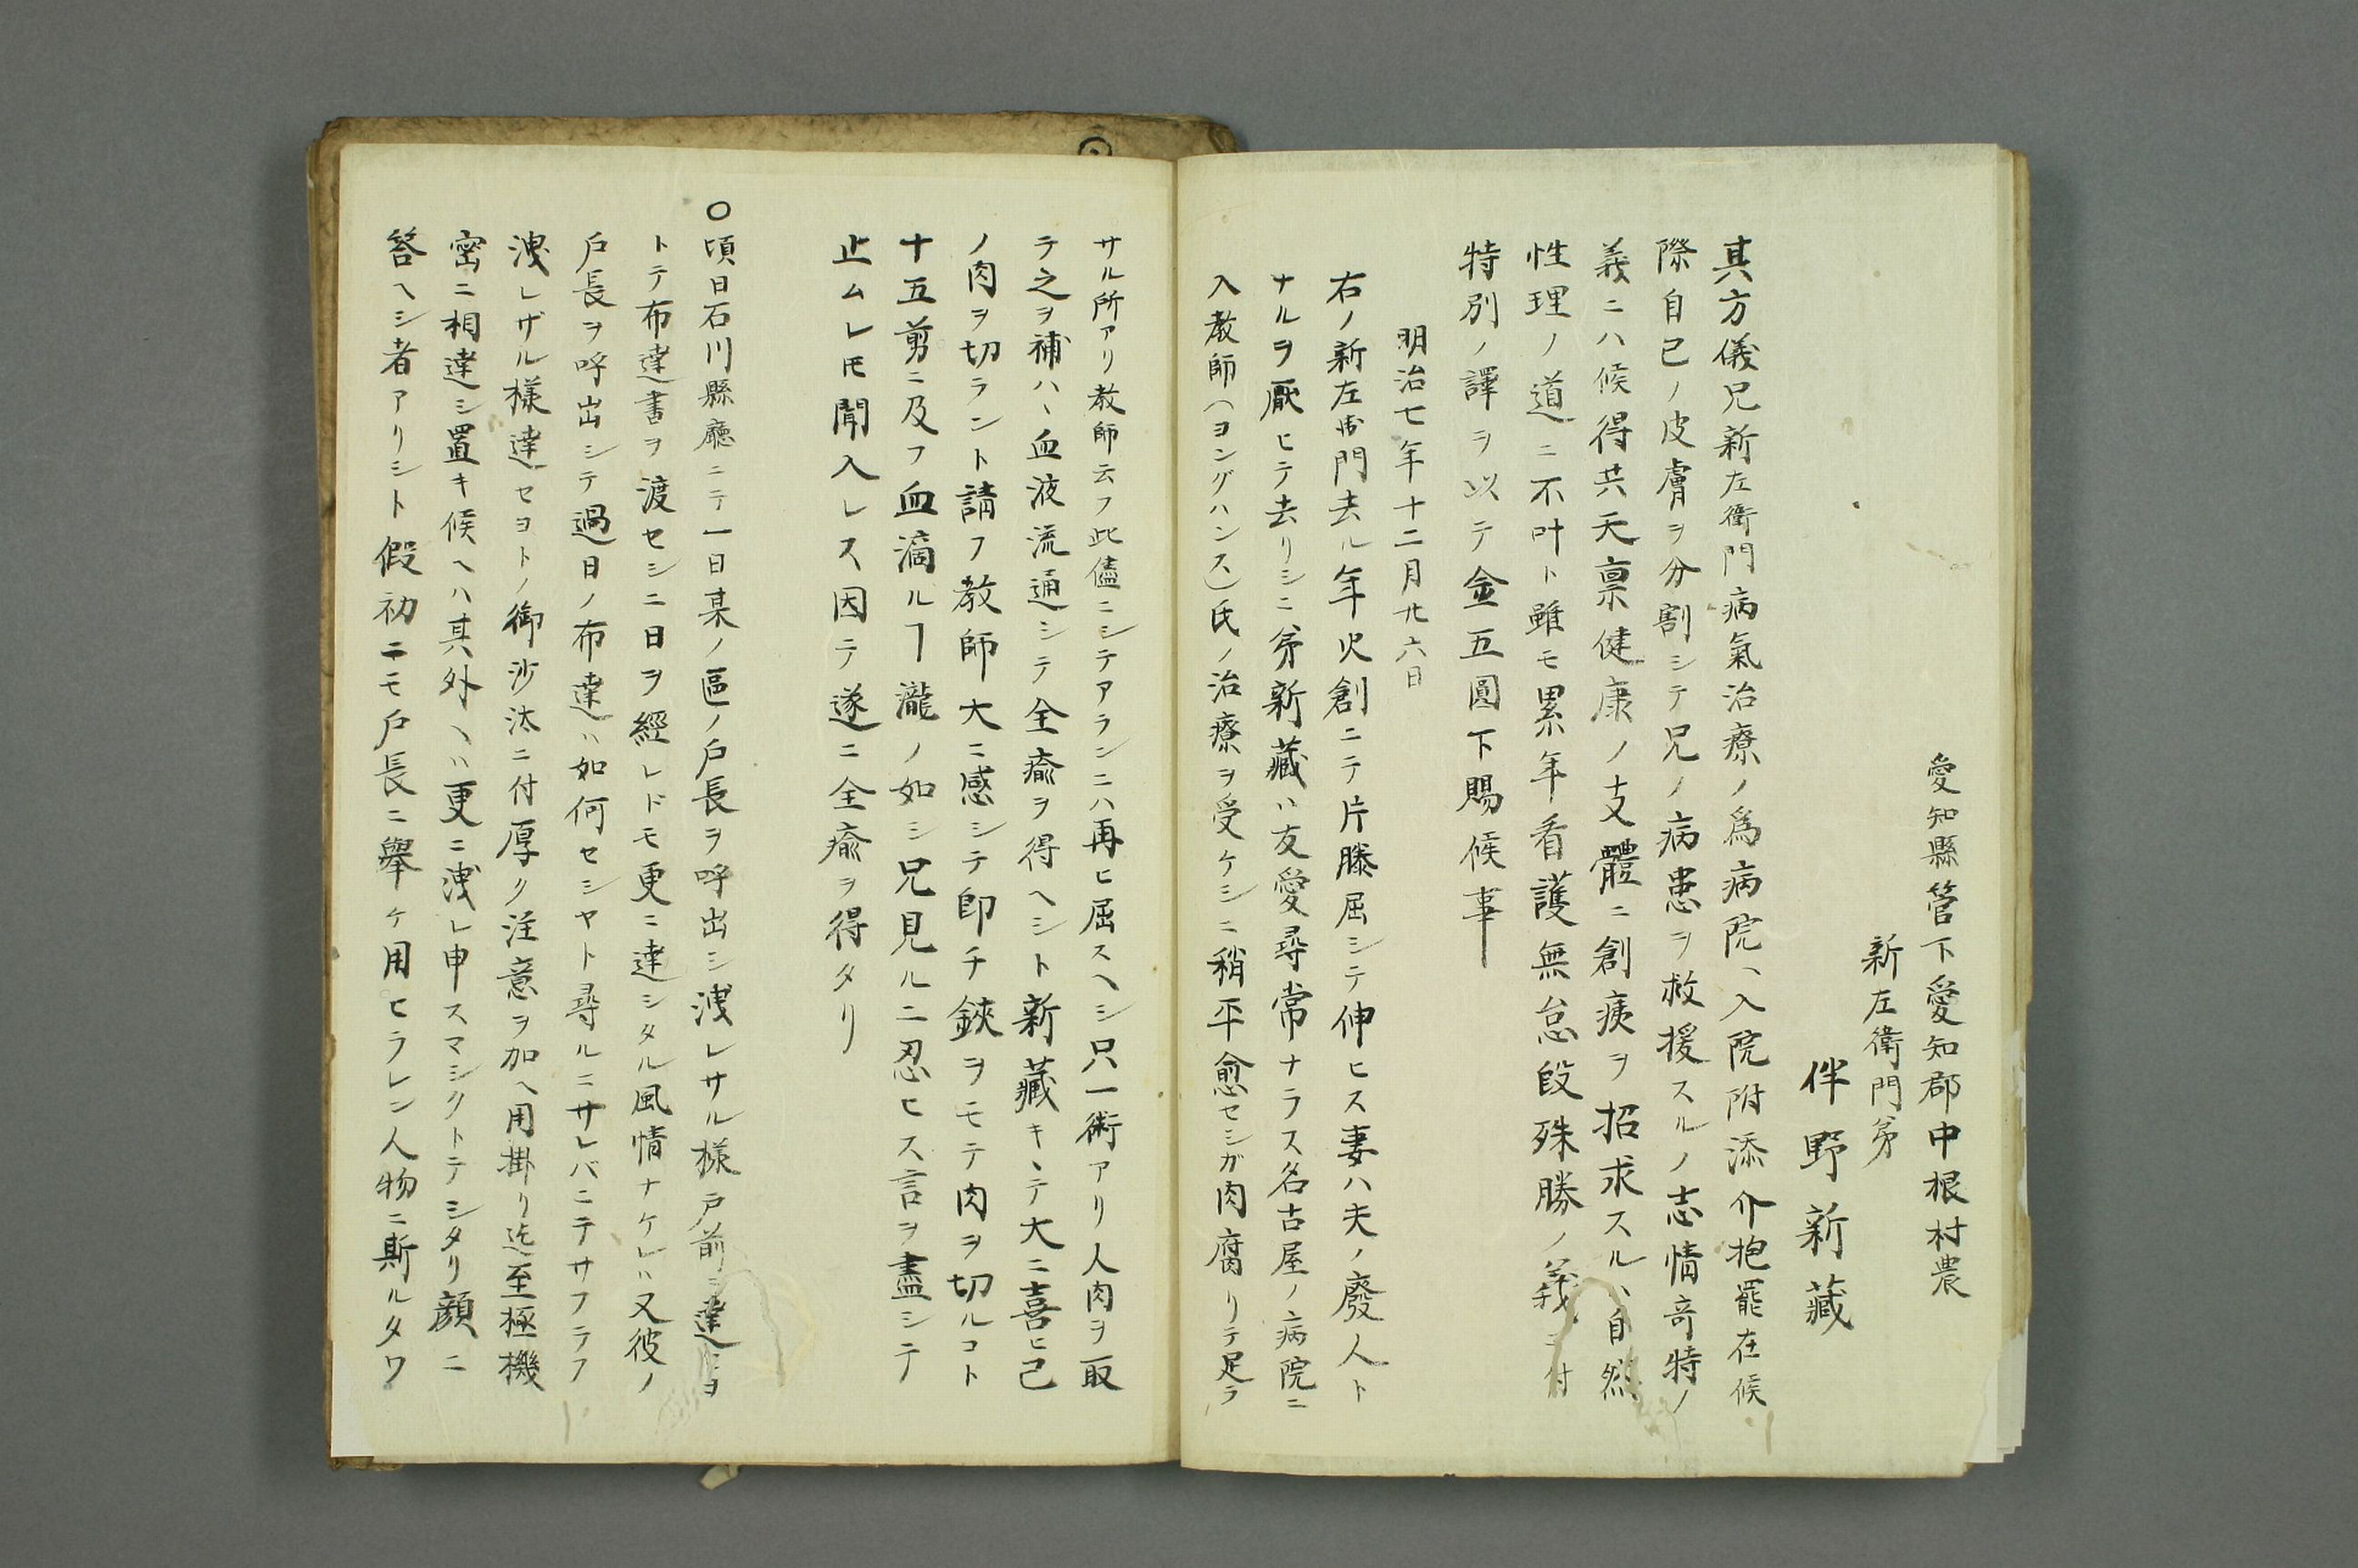 愛知縣管下愛知郡中根村農
新左衛門弟
伴野新藏
其方儀兄新左衛門病氣治療ノ為病院ヘ入院附添介抱罷在候
際自已ノ皮膚ヲ分割シテ兄ノ病患ヲ救援スルノ志情奇特ノ
義ニハ候得共天禀健康ノ支體ニ創痍ヲ招求スルハ自然
性理ノ道ニ不叶ト雖モ累年看護無怠段殊勝ノ義ニ付
特別ノ譯ヲ以テ金五圓下賜候事
明治七年十二月廿六日
右ノ新左衛門去ル年火創ニテ片膝屈シテ伸ヒス妻ハ夫ノ廢人ト
ナルヲ厭ヒテ去リシニ弟新藏ハ友愛尋常ナラス名古屋ノ病院ニ
入教師(ヨングハンス)氏ノ治療ヲ受ケシニ稍平愈セシガ肉腐リテ足ラ
サル所アリ教師云フ此儘ニシテアランニハ再ヒ屈スヘシ只一術アリ人肉ヲ取
テ之ヲ補ハヽ血液流通シテ全癒ヲ得ヘシト新藏キヽテ大ニ喜ヒ己
ノ肉ヲ切ラント請フ教師大ニ感シテ即チ鋏ヲモテ肉ヲ切ルコト
十五剪ニ及フ血滴ルヿ瀧ノ如シ兄見ルニ忍ヒス言ヲ盡シテ
止ムレ𪜈聞入レス因テ遂ニ全癒ヲ得タリ
○頃日石川縣廳ニテ一日某ノ區ノ戸長ヲ呼出シ洩レサル様戸前ニ達
トテ布達書ヲ渡セシニ日ヲ經レドモ更ニ達シタル風情ナケレハ又彼ノ
戸長ヲ呼出シテ過日ノ布達ハ如何セシヤト尋ルニサレバニテサフラフ
洩レザル様達セヨトノ御沙汰ニ付厚ク注意ヲ加ヘ用掛リ迄至極機
密ニ相達シ置キ候ヘハ其外ヘハ更ニ洩レ申スマシクトテシタリ顔ニ
答ヘシ者アリシト假初ニモ戸長ニ擧ケ用ヒラレン人物ニ斯ルタワ